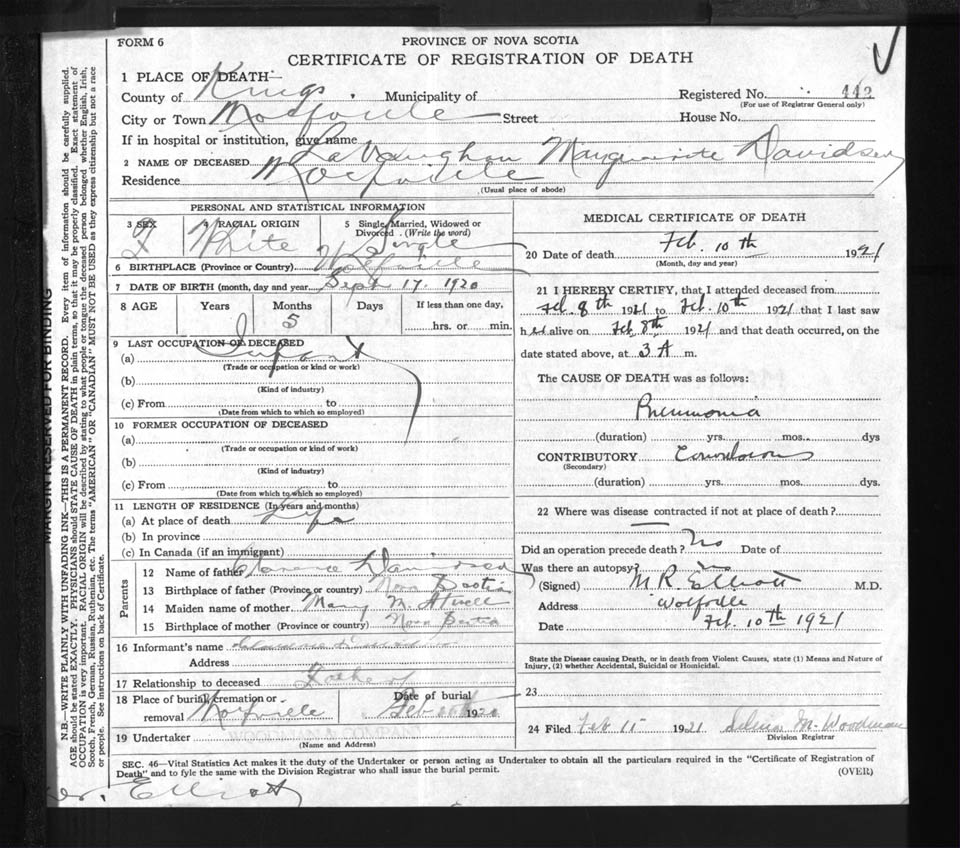 FORM 6
PROVINCE OF NOVA SCOTIA
CERTIFICATE OF REGISTRATION OF DEATH
1 PLACE OF DEATH—
County of Kings, Municipality of
Registered No. 442
(For use of Registrar General only)
City or Town Wolfville Street House No.
If in hospital or institution, give name
2 NAME OF DECEASED LaVaughan Marguerite Davidson
Residence Wolfville
(Usual place of abode)
PERSONAL AND STATISTICAL INFORMATION
3 SEX 4 RACIAL ORIGIN 5 Single, Married, Widowed or
Divorced. (Write the word)
F White Single
6 BIRTHPLACE (Province or Country) Wolfville
7 DATE OF BIRTH (month, day and year Sept 17. 1920
8 AGE Years Months Days If less than one day,
5 hrs. or min.
9 LAST OCCUPATION OF DECEASED
(a) Infant
(Trade or occupation or kind or work)
(b)
(Kind of industry)
(c) From to
(Date from which to which so employed)
10 FORMER OCCUPATION OF DECEASED
(a)
(Trade or occupation or kind of work)
(b)
(Kind of industry)
(c) From to
(Date from which to which so employed)
11 LENGTH OF RESIDENCE (In years and months)
(a) At place of death Life
(b) In province
(c) In Canada (if an immigrant)
Parents
12 Name of father Clarence Davidson
13 Birthplace of father (Province or country) Nova Scotia
14 Maiden name of mother Mary M. Atwell
15 Birthplace of mother (Province or country) Nova Scotia
16 Informant's name
Address
17 Relationship to deceased Father
18 Place of burial, cremation or Date of burial
removal Wolfville Feb 1920
19 Undertaker
(Name and Address)
MEDICAL CERTIFICATE OF DEATH
20 Date of death Feb. 10th 1921
(Month, day and year)
21 I HEREBY CERTIFY, that I attended deceased from
Feb. 8th 1921 to Feb. 10th 1921 that I last saw
her alive on Feb 8th 1921 and that death occurred, on the
date stated above, at 3 A m.
The CAUSE OF DEATH was as follows:
Pneumonia
(duration) yrs. mos. dys
CONTRIBUTORY Convulsions
(Secondary)
(duration) yrs. mos. dys.
22 Where was disease contracted if not at place of death?
Did an operation precede death? No Date of
Was there an autopsy? no
(Signed) M.R. Elliott M.D.
Address Wolfville
Date Feb. 10th 1921
State the Disease causing Death, or in death from Violent Causes, state (1) Means and Nature of
Injury, (2) whether Accidental, Suicidal or Homicidal.
23
24 Filed Feb 11 1921 M. Woodman
Division Registrar
SEC. 46—Vital Statistics Act makes it the duty of the Undertaker or person acting as Undertaker to obtain all the particulars required in the "Certificate of Registration of
Death" and to fyle the same with the Division Registrar who shall issue the burial permit.
(OVER)
Dr. Elliott
MARGIN RESERVED FOR BINDING
N.B.—WRITE PLAINLY WITH UNFADING INK—THIS IS A PERMANENT RECORD. Every item of information should be carefully supplied.
AGE should be stated EXACTLY. PHYSICIANS should STATE CAUSE OF DEATH in plain terms, so that it may be properly classified. Exact statement of
OCCUPATION is very important. RACIAL ORIGIN will be described by stating to what people or tongue the deceased person belonged whether English, Irish,
Scotch, French, German, Russian, Ruthenian, etc. The terms "AMERICAN" OR "CANADIAN" MUST NOT BE USED as they express citizenship but not a race
or people. See instructions on back of Certificate.